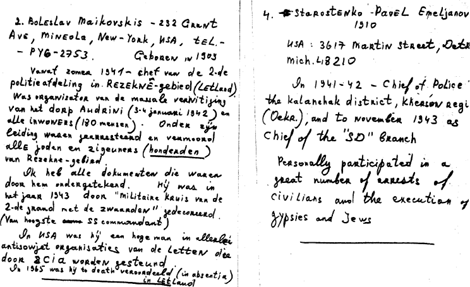 2. Boleslav Maikovskis - 232 Grant
Ave, Mineola, New-York, USA, tel.-
- PY6-2753. Geboren in 1903
Vanaf zomer 1941 - chef van de 2-de
politieafdeling in Rezekne-gebied (Letland)
Was organisator van de massale vernietiging
van het dorp Audrini (3-4 januari 1942) en
alle inwoners (180 mensen). Onder zijn
leiding waren gearresteerd en vermoord
alle joden en zigeuners (honderden)
van Rezekne-gebied.
Ik heb alle dokumenten die waren
door hem ondergetekend. Hij was in
het jaar 1943 door "militaire kruis van de
2-de grand met de zwaarden" gedecoreerd.
(Van hoogste SS commandant)
In USA was hij een hoge man in allerlei
antisowjet organisaties van de Letten die
door CIA worden gesteurd
In 1965 was hij to death veroordeeld (in absentia)
in Letland
4. Starostenko - Pavel Emeljanow
1910
USA: 3617 Martin Street, Detr
Mich. 48210
In 1941-42 - Chief of Police
the kalanchak district, kherson regi
(Oekr.), and to november 1943 as
Chief of the "SD" Branch
Personally participated in a
great number of arrests of
civilians and the execution of
gypsies and Jews